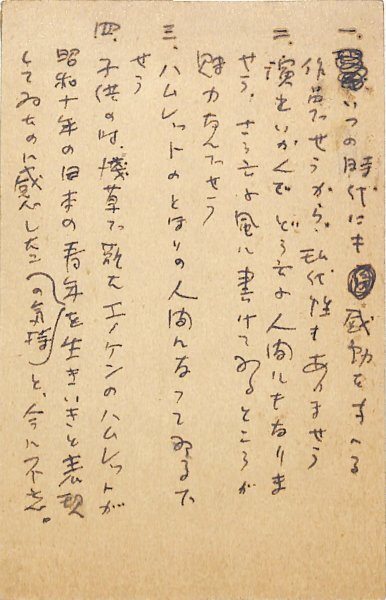 一、いつの時代にも感動を与へる
作品でせうから、現代性もありませう
二、演出いかんでどう云ふ人間にもなりま
せう。さう云ふ風に書けてゐるところが
魅力なんでせう
三、ハムレットのとほりの人間になつてゐるで
せう
四、子供の時、浅草で観たエノケンのハムレットが
昭和十年の日本の青年の気持を生きいきと表現
してゐたのに感心したこと、今に不忘。